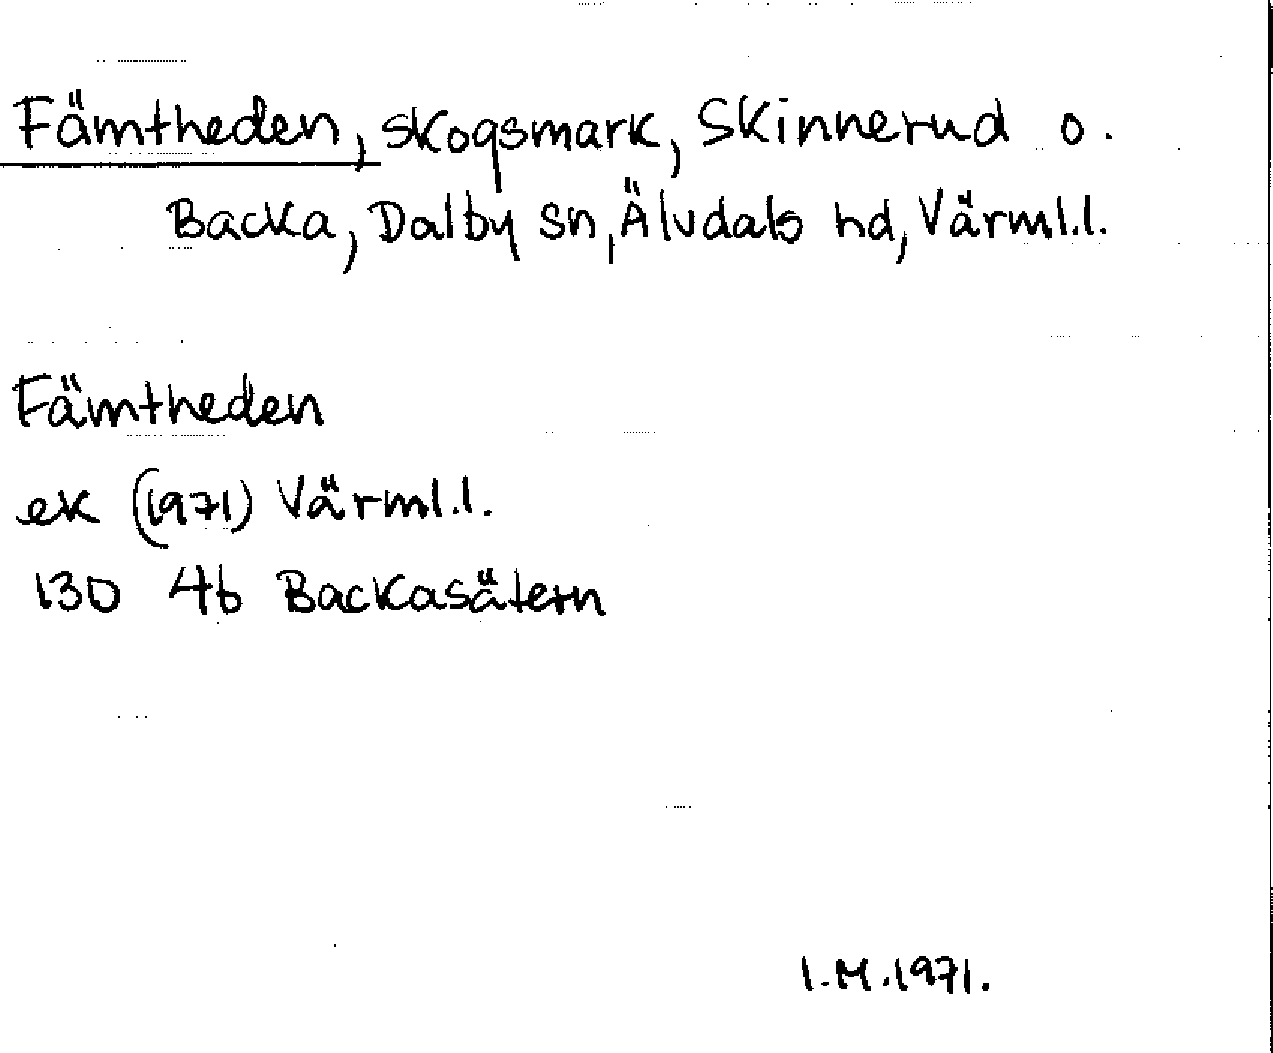 Fämtheden, skogsmark, Skinnerud o.
Backa, Dalby sn, Älvdals hd, Värml.l.
Fämtheden
ek (1971) Värml.l.
130 4b Backasätern
I.M.1971.